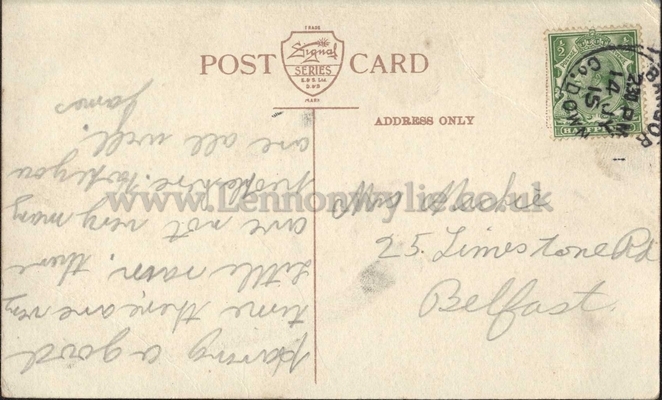 POST CARD
TRADE
Signal
SERIES
E & S Ltd
D & B
MARK
ADDRESS ONLY
½
BANGOR
2 30 PM
14 JY
15
CO. DOWN
HALFPENNY
Mrs Mackie
25. Limestone Rd
Belfast.
having a good
time, there are very
little rain, there
are not very many
people here. hope you
are all well.
James
www.Lennonwylie.co.uk